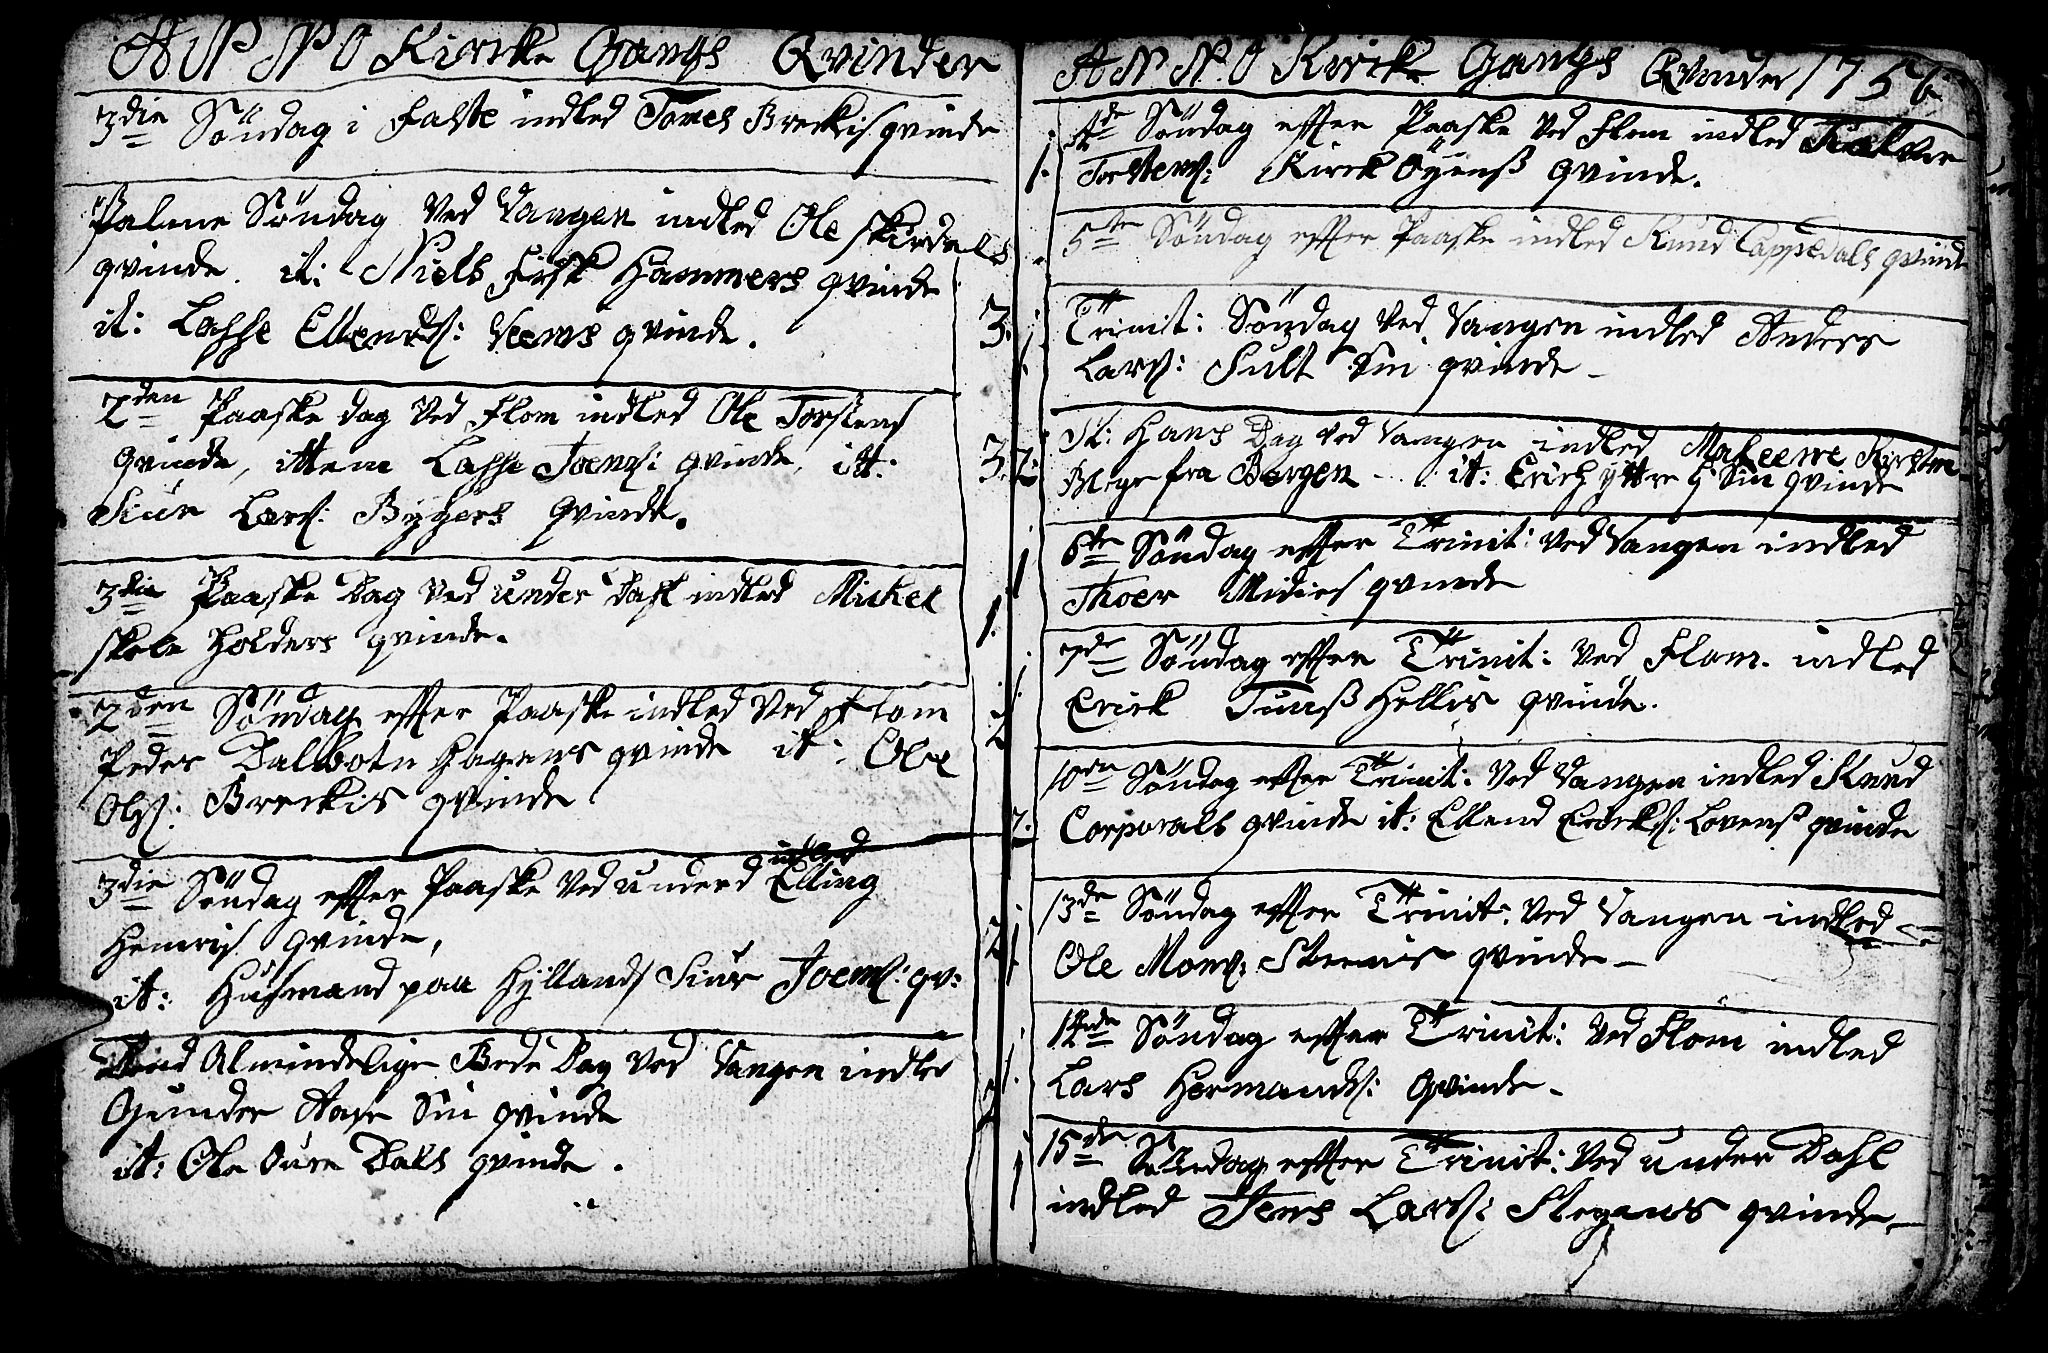 ANNO Kircke Gangs Qvinder
3die Söndag i Faste indled Tomes Breckis qvinde
Palme Söndag Ved Vangen indled Ole Skirdals
qvinde. it: Niels Frsk Hammers qvinde
it: Lasse Ellends: Veems qvinde.
3.
2den Paaske dag Ved Flom indled Ole Torstens
qvinde, ittem Lasse Joens: qvinde, itt:
Siur Lars: Byyers Qvinde.
3.
3die Paaske Dag Ved under Dahl indled Mickel
Skole Holders qvinde.
1.
2den Söndag effter Paaske indled Ved Flom
Peder Dalbotn Hagens qvinde it: Ole
Ols: Breckis qvinde
2
3die Söndag effter Paaske Ved underd indled Elling
Henris qvinde,
it: Husmand paa Hylland Siur Joens: qv:
2
Almindelige Bede Dag Ved Vangen indled
Gunder Aase Sin qvinde
it: Ole Dals qvinde.
2
ANNO Kircke Gangs Qvinder 1756
4de Söndag effter Paaske Ved Flom indled
Torstens: Kirck Öyenß qvinde.
1.
5te Söndag effter Paaske indled Knud Cappedals qvinde
Trinit: Söndag Ved Vangen indled Anders
Lars: Fult Sin qvinde -
1
St: Hans Dag Ved Vangen indled
fra Bergen - it: Erich yttre Sin qvinde
2:
6te Söndag effter Trinit: Ved Vangen indled
Thoer Midies qvinde
1
7de Söndag effter Trinit: Ved Flom. indled
Erick Tunß Hellis qvinde.
1.
10de Söndag effter Trinit: Ved Vangen indled Knud
Corporals qvinde it: Ellend Ericks: Lovenß qvinde
2.
13de Söndag effter Trinit: Ved Vangen indled -
Ole Mons: Steenis qvinde -
1
14de Söndag effter Trinit: Ved Flom indled
Lars Hermands: Qvinde -
1.
15de Söndag effter Trinit: Ved under Dahl
indled Jens Lars: Stegens qvinde -
1